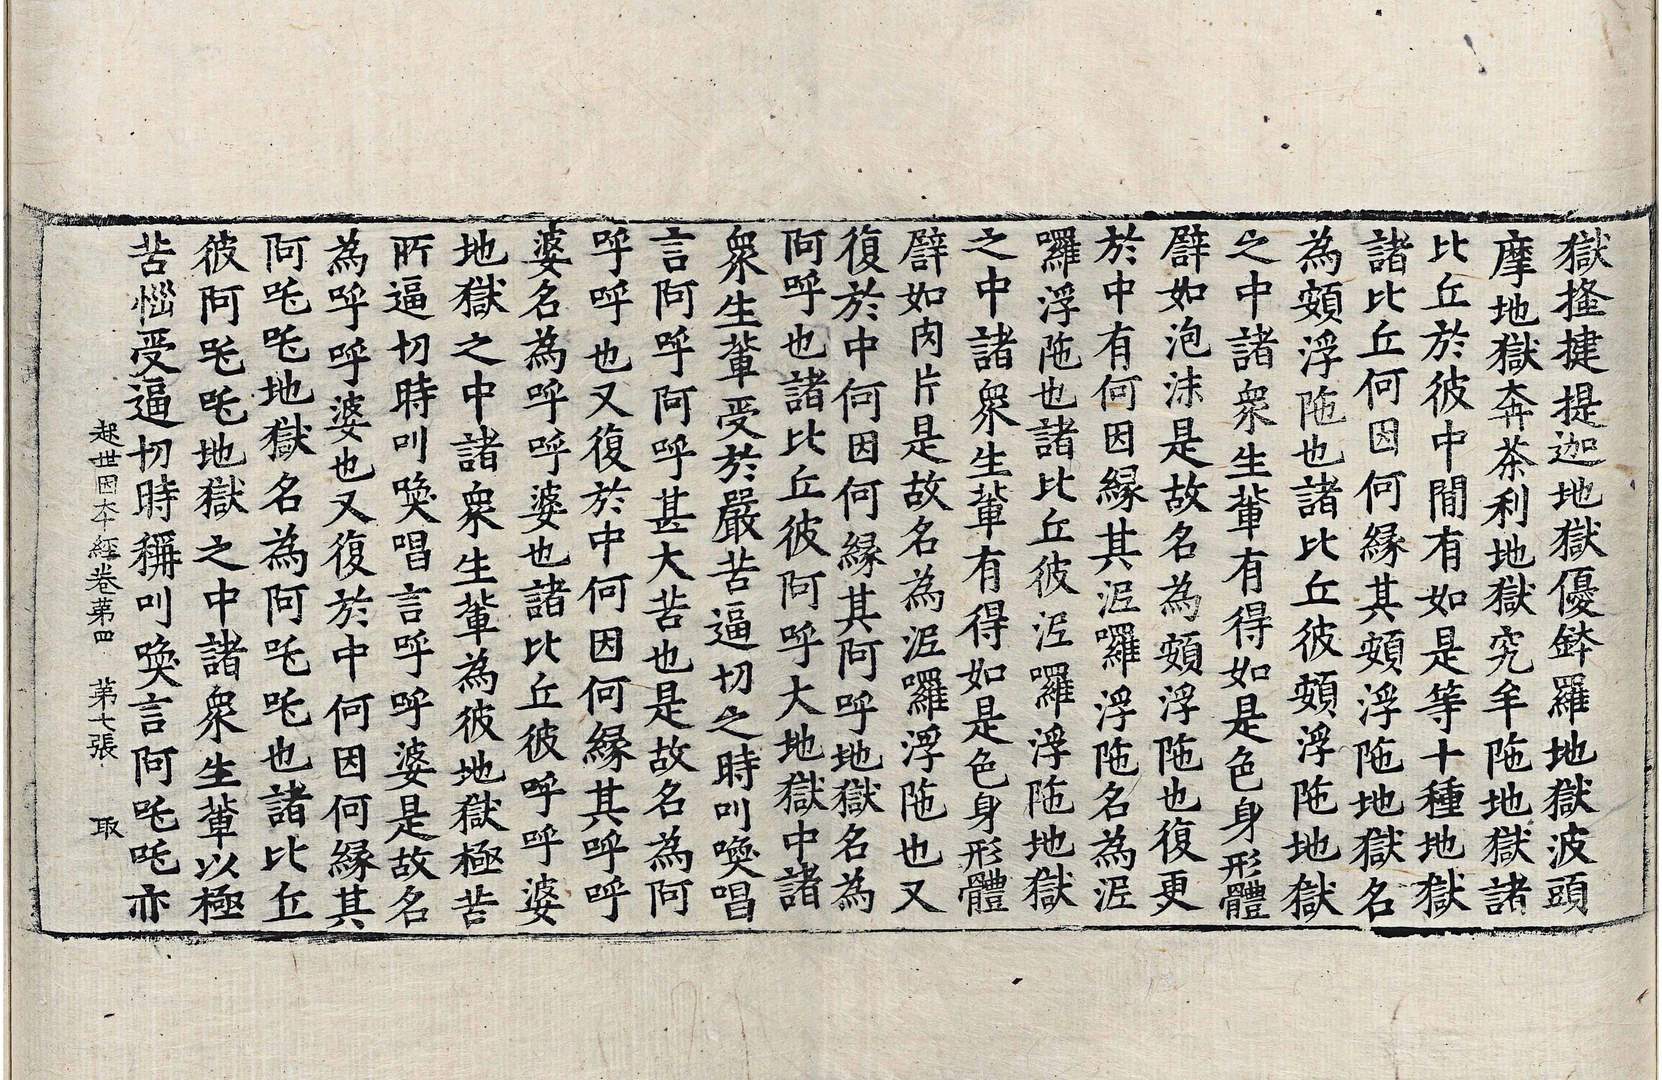 獄搔揵提迦地獄優鉢羅地獄波頭
摩地獄奔茶利地獄究牟陁地獄諸
比丘於彼中間有如是等十種地獄
諸比丘何因何緣其頞浮陁地獄名
為頞浮陁也諸比丘彼頞浮陁地獄
之中諸衆生輩有得如是色身形體
譬如泡沫是故名為頞浮陁也復更
於中有何因緣其泥囉浮陁名為泥
囉浮陁也諸比丘彼泥囉浮陁地獄
之中諸衆生輩有得如是色身形體
譬如肉片是故名為泥囉浮陁也又
復於中何因何緣其阿呼地獄名為
阿呼也諸比丘彼阿呼大地獄中諸
衆生輩受於嚴苦逼切之時叫喚唱
言阿呼阿呼甚大苦也是故名為阿
呼呼也又復於中何因何緣其呼呼
婆名為呼呼婆也諸比丘彼呼呼婆
地獄之中諸衆生輩為彼地獄極苦
所逼切時叫喚唱言呼呼婆是故名
為呼呼婆也又復於中何因何緣其
阿吒吒地獄名為阿吒吒也諸比丘
彼阿吒吒地獄之中諸衆生輩以極
苦惱受逼切時稱叫喚言阿吒吒亦
起世因本經卷第四 第七張 取